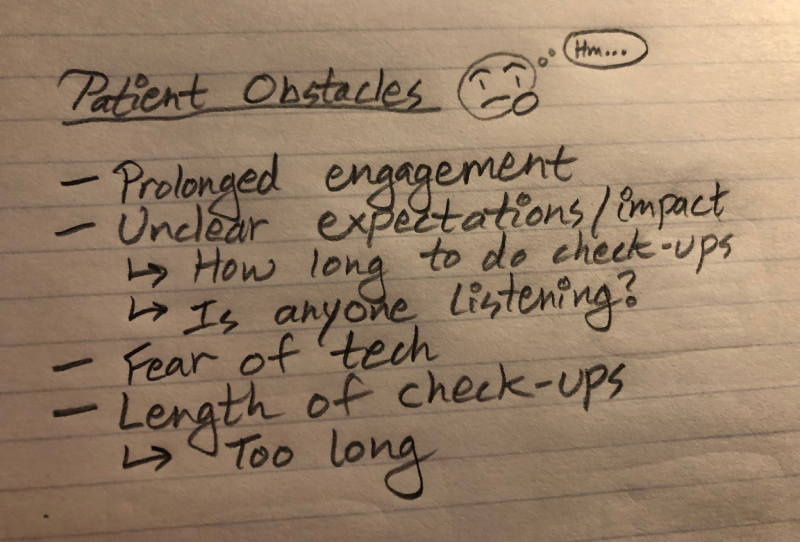 Patient Obstacles Hm...
- Prolonged engagement
- Unclear expectations/impact
↳ How long to do check-ups
↳ Is anyone listening?
- Fear of tech
- Length of check-ups
↳ Too long